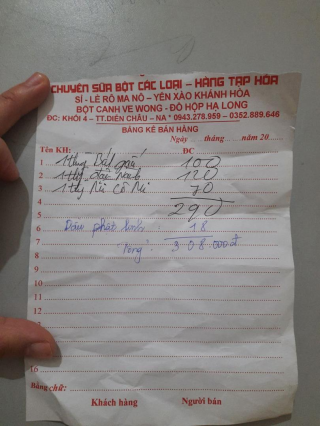 CHUYÊN SỮA BỘT CÁC LOẠI - HÀNG TẠP HÓA
SỈ - LẺ RÔ MA NÔ - YẾN XÀO KHÁNH HÒA
BỘT CANH VE WONG - ĐỒ HỘP HẠ LONG
ĐC: KHỐI 4 - TT.DIỄN CHÂU - NA * 0943.278.959 - 0352.889.646
BẢNG KÊ BÁN HÀNG
Ngày tháng năm 20
Tên KH: ĐC:
1 1 thg 100
2 1 thg 120
3 1 thg 70
4
5 290
6 phát sinh 18
7 Tổng 308.000đ
8
9
10
11
12
13
16
Bằng chữ:
Khách hàng Người bán